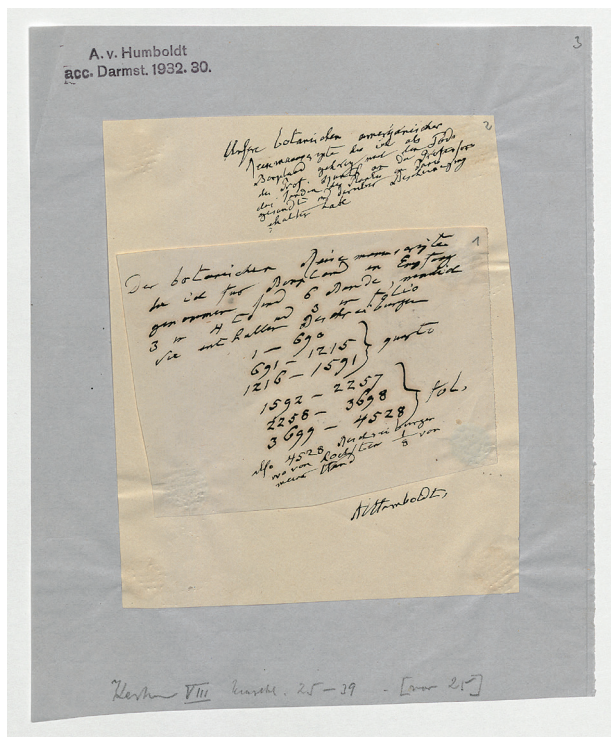 A. v. Humboldt
acc. Darmst. 1932. 30.
3
2
Unsre botanischen amerikanischen
Reisemanuscripte die ich als
Bonpland
des Prof. Kunth an die Professors
des Jardin des Plantes zu Paris
gesandt und darüber Bescheinigung
erhalten habe
1
Der botanischen Reisemanuscripte
die ich für Bonpland in Empfang
genommen sind 6 Bände, nämlich
3 in 4to und 3 in folio
Sie enthalten Beschreibungen
1 – 690
691 – 1215
1216 – 1591
quarto
1592 – 2257
2258 – 3698
3699 – 4528
fol.
also 4528 Beschreibungen
wovon höchstens 1/8 von
meiner Hand
AvHumboldt,
Kasten VIII 25–39 - [von 25]